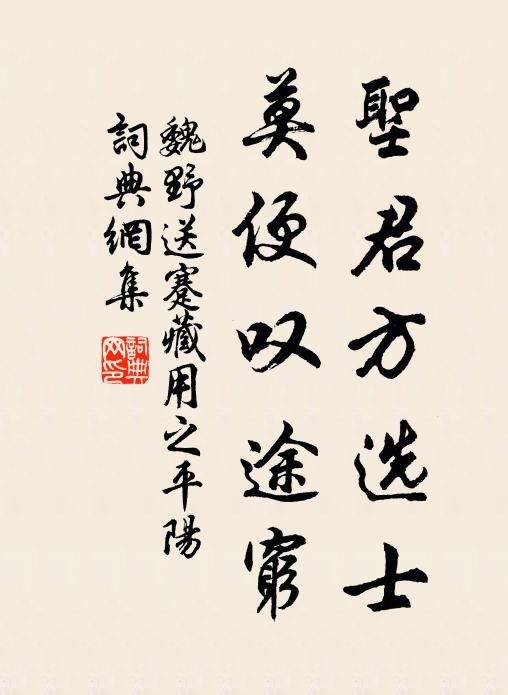 聖君方选士
莫便叹途窮
魏野送蹇藏用之平陽
詞典網集
詞典网印